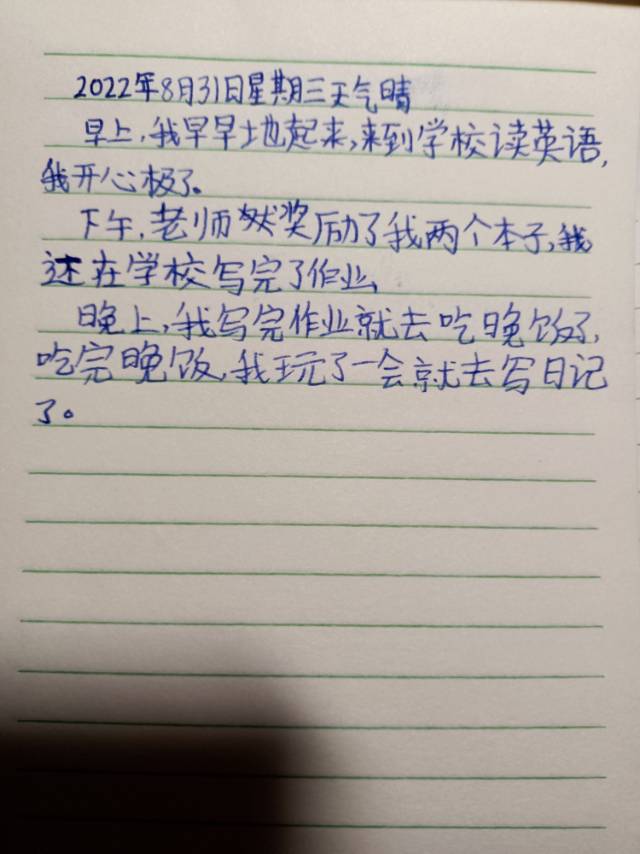 2022年8月31日星期三天气晴
早上,我早早地起来,来到学校读英语,
我开心极了。
下午,老师奖励了我两个本子,我
还在学校写完了作业、
晚上,我写完作业就去吃晚饭了,
吃完晚饭,我玩了一会就去写日记
了。